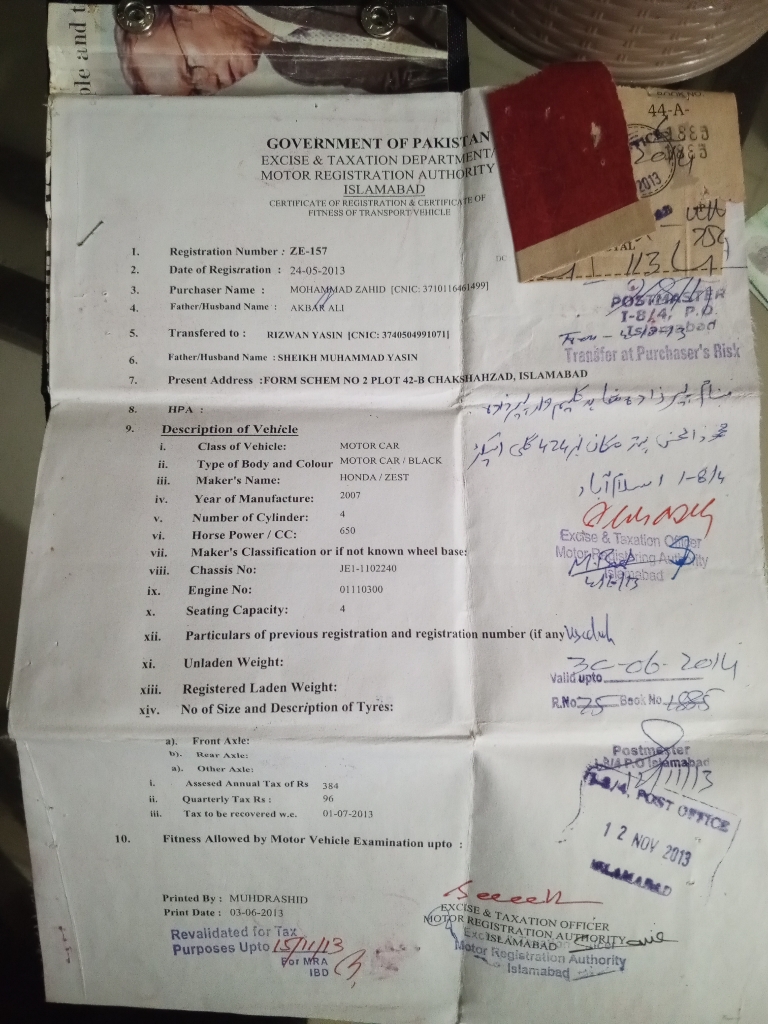 ple and t
44-A-
GOVERNMENT OF PAKISTAN
EXCISE & TAXATION DEPARTMENT/
MOTOR REGISTRATION AUTHORITY
ISLAMABAD
CERTIFICATE OF REGISTRATION & CERTIFICATE OF
FITNESS OF TRANSPORT VEHICLE
2013
1. Registration Number : ZE-157
2. Date of Regisration : 24-05-2013
3. Purchaser Name : MOHAMMAD ZAHID [CNIC: 3710116461499]
4. Father/Husband Name : AKBAR ALI
POSTMASTER
I-8/4, P.O.
Islamabad
Transfer at Purchaser's Risk
5. Transfered to : RIZWAN YASIN [CNIC: 3740504991071]
6. Father/Husband Name : SHEIKH MUHAMMAD YASIN
7. Present Address :FORM SCHEM NO 2 PLOT 42-B CHAKSHAHZAD, ISLAMABAD
8. HPA :
9. Description of Vehicle
i. Class of Vehicle: MOTOR CAR
ii. Type of Body and Colour MOTOR CAR / BLACK
iii. Maker's Name: HONDA / ZEST
iv. Year of Manufacture: 2007
v. Number of Cylinder: 4
vi. Horse Power / CC: 650
vii. Maker's Classification or if not known wheel base:
viii. Chassis No: JE1-1102240
ix. Engine No: 01110300
x. Seating Capacity: 4
I-8/4 اسلام آباد
Excise & Taxation Officer
Motor Registering Authority
Islamabad
xii. Particulars of previous registration and registration number (if any
xi. Unladen Weight:
xiii. Registered Laden Weight:
xiv. No of Size and Description of Tyres:
30-06-2014
Valid upto
R.No 75 Book No 1885
a). Front Axle:
b). Rear Axle:
a). Other Axle:
i. Assesed Annual Tax of Rs 384
ii. Quarterly Tax Rs : 96
iii. Tax to be recovered w.e. 01-07-2013
Postmaster
I-8/4 P.O Islamabad
12/11/13
I-8/4, POST OFFICE
12 NOV 2013
ISLAMABAD
10. Fitness Allowed by Motor Vehicle Examination upto :
Printed By : MUHDRASHID
Print Date : 03-06-2013
Revalidated for Tax
Purposes Upto 15/11/13
For MRA
IBD
EXCISE & TAXATION OFFICER
MOTOR REGISTRATION AUTHORITY
ISLAMABAD
Motor Registering Authority
Islamabad